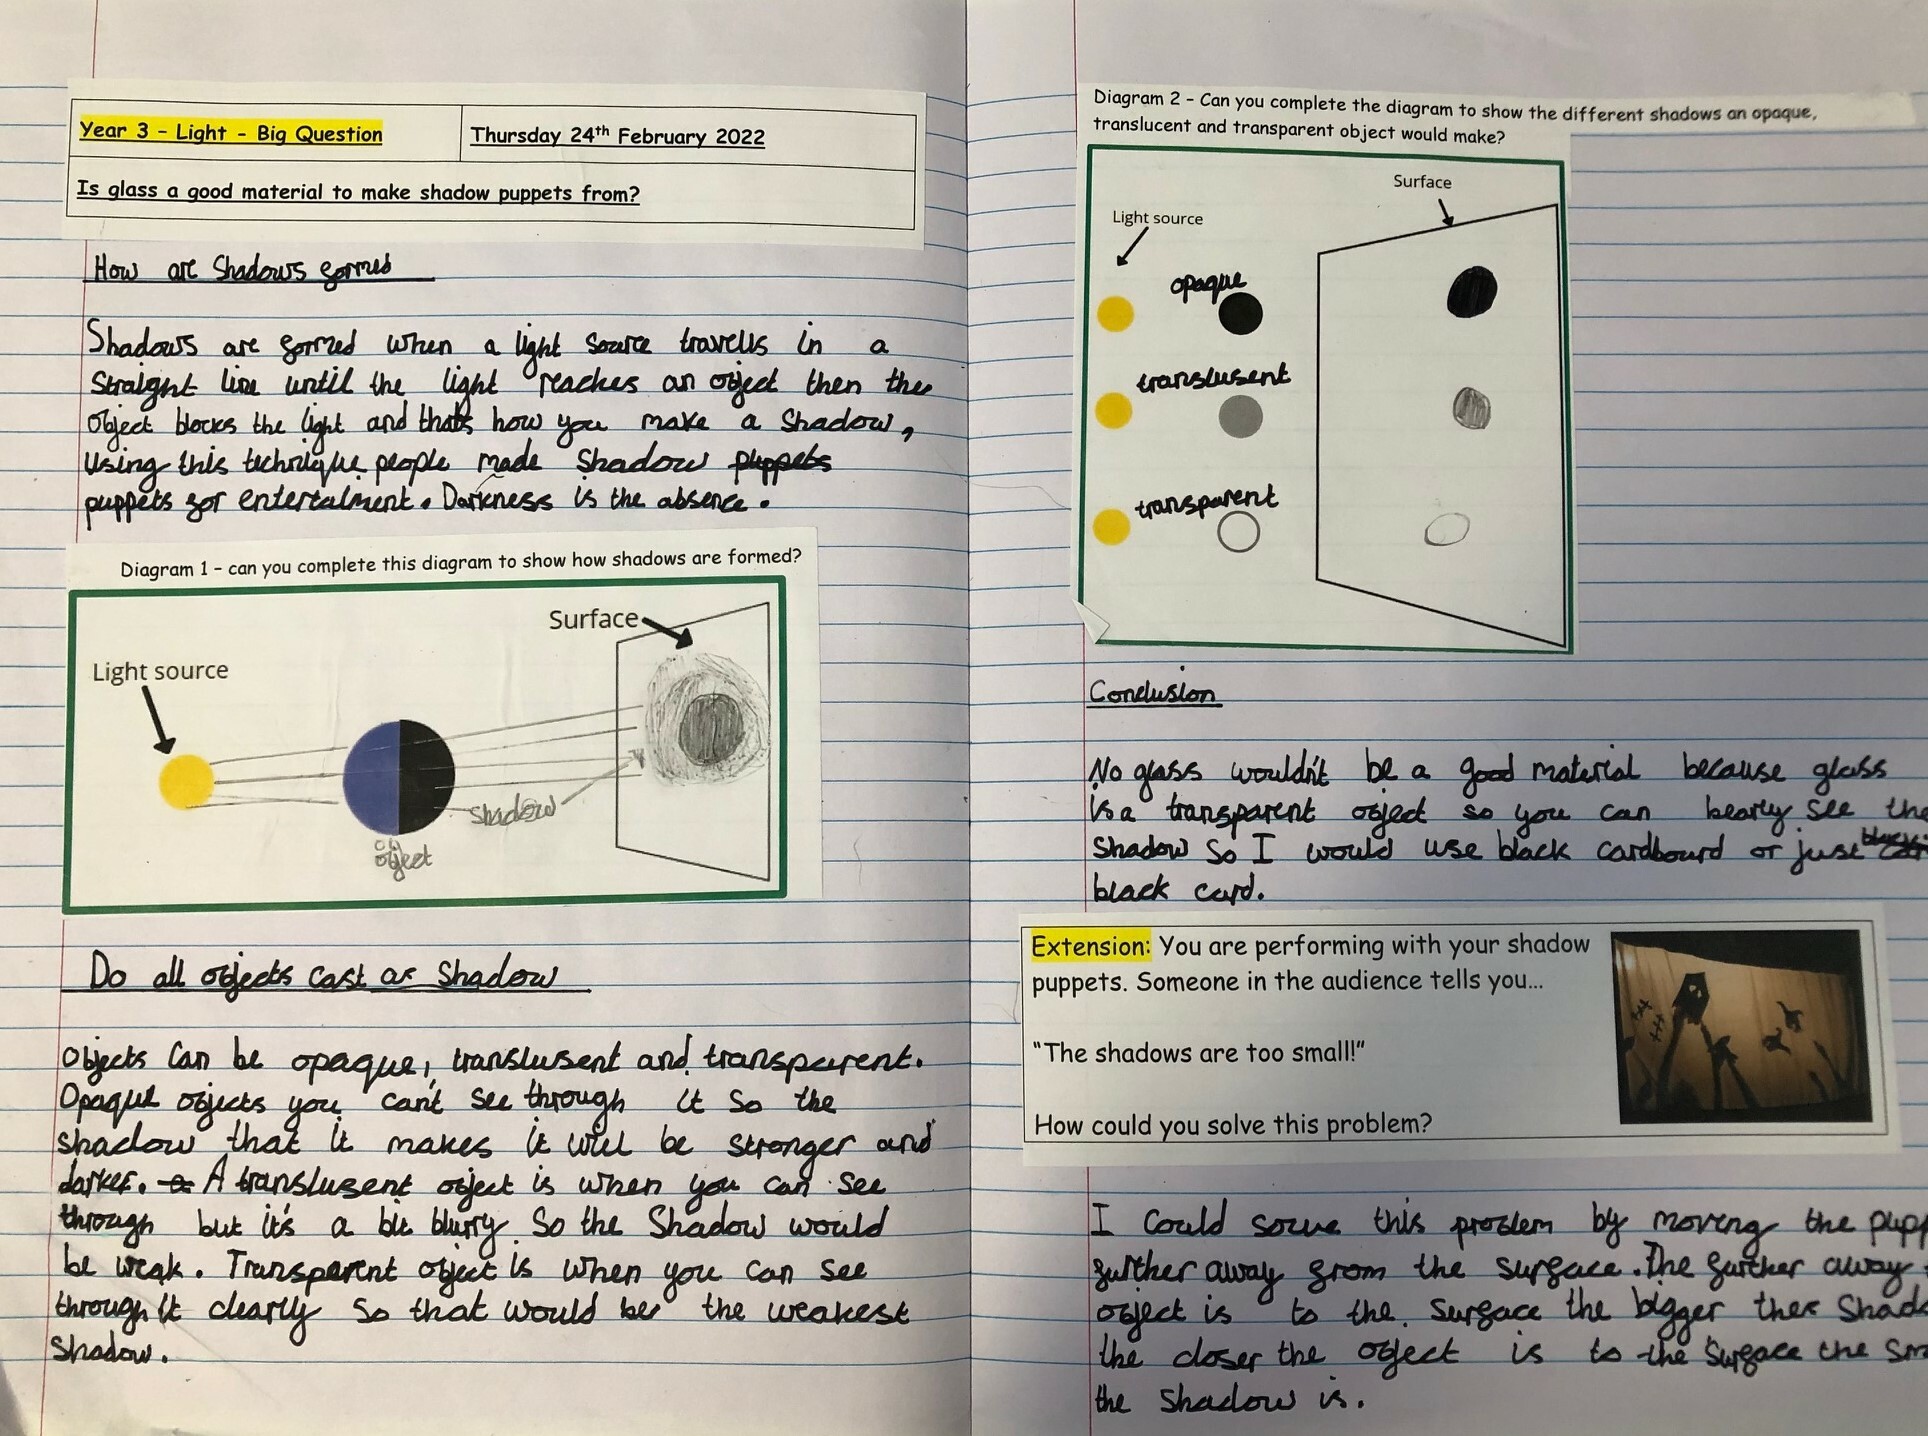 Year 3 – Light - Big Question
Thursday 24th February 2022
Is glass a good material to make shadow puppets from?
How are Shadows formed
Shadows are formed when a light source travells in a
straight line until the light reaches an object then the
object blocks the light and thats how you make a Shadow,
Using this technique people made shadow puppets
puppets for entertaiment. Darkness is the absence.
Diagram 1 – can you complete this diagram to show how shadows are formed?
Surface
Light source
shadow
object
Do all objects cast a Shadow
Objects can be opaque, translusent and transparent.
Opaque objects you can't see through it so the
shadow that it makes it will be stronger and
darker. A translusent object is when you can see
through but it's a bit blurry So the Shadow would
be weak. Transparent object is when you can see
through it clearly so that would be the weakest
shadow.
Diagram 2 – Can you complete the diagram to show the different shadows an opaque,
translucent and transparent object would make?
Surface
Light source
opaque
translusent
transparent
Conclusion
No glass wouldn't be a good material because glass
is a transparent object so you can bearly see the
shadow so I would use black cardbourd or just
black card.
Extension: You are performing with your shadow
puppets. Someone in the audience tells you...
"The shadows are too small!"
How could you solve this problem?
I could solve this problem by moving the
further away from the surface. The further away
object is to the surface the bigger the
the closer the object is to the surface the
the shadow is.